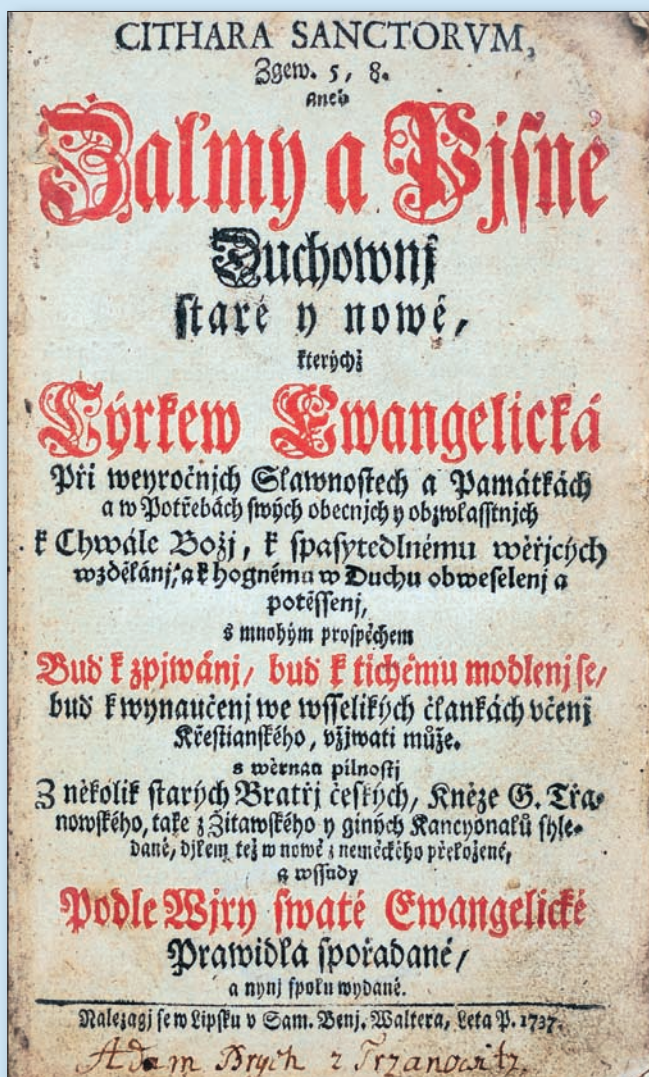 CITHARA SANCTORVM,
Zgew. 5, 8.
aneb
Žalmy a Pjsně
Duchownj
staré y nowé,
kterýchž
Cýrkew Ewangelická
Při weyročnjch Slawnostech a Památkách
a w Potřebách swých obecnjch y obzwlasstnjch
k Chwále Božj, k spasytedlnému wěřjcých
wzdělánj, a k hognému w Duchu obweselenj a
potěssenj,
s mnohým prospěchem
Buď k zpjwánj, buď k tichému modlenj se,
buď k wynaučenj we wsselikých člankách včenj
Křestianského, vžjwati může.
s wěrnau pilnostj
Z několik starých Bratřj českých, Kněze G. Třa-
nowského, také z Žitawského y giných Kancyonalů shle-
dané, djlem též w nowě z německého přeložené,
a wssudy
Podle Wjry swaté Ewangelické
Prawidla spořádané,
a nynj spolu wydané.
Nalezagj se w Lipsku v Sam. Benj. Waltera, Leta P. 1737.
Adam Brych z Trzanowitz.